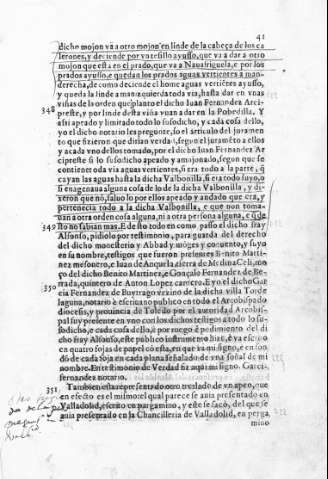 41
dicho mojon va a otro mojon en linde de la cabeça de los ca
lerones, y deciende por vntesillo ayusso, que va a dar a otro
mojon que esta en el prado, que va a Naualriguela, e por los
prados ayusso, e quedan los prados aguas vertientes a man-
derecha, de como deciende el lomo aguas vertiẽtes ayusso,
y queda la linde a man izquierda toda via, hasta dar en vnas
viñas de la orden que planto el dicho Iuan Fernandez Arci
348
preste, y por linde desta viña van a dar en la Pobedilla. Y
assi apeado y limitado todo lo susodicho, y cada cosa dello,
yo el dicho notario les pregunte, so el articulo del juramen
to que fizieron que dixan verdad, segun el juramẽto a ellos
y a cada vno dellos tomado, por el dicho Iuan Fernandez Ar
cipreste si lo susodicho apeado y amojonado, segun que se
contiene oda via aguas vertientes, si era todo a la parte, q̃
cayan las aguas hasta la dicha Valbonilla, si era todo suyo, o
si enagenaua alguna cosa de lo de la dicha Valbonilla, y di-
xeron que nõ, saluo lo por ellos apeado y andado que era, y
pertenecia todo a la dicha Valbonilla, e que non toma-
uan a otra orden cosa alguna, ni a otra persona alguna, e q̃ de
349
sto no sabian mas. E de sto todo en como passo el dicho fray
Alfonso, pidiolo por testimonio, para guarda del derecho
del dicho monesterio y Abbad y mõges y conuento, y suyo
en su nombre, testigos que fueron presentes Benito Marti-
nez mesonero, e Iuan de Anquela sierra de Medina Celi, mo
ço del dicho Benito Martinez, e Gonçalo Fernandez de Be-
rrada, quintero de Anton Lopez carrero. E yo el dicho Gar
350
cia Fernandez de Buytrago vezino de la dicha villa Torde
laguna, notario e escriuano publico en todo el Arçobispado
diocesis, y prouincia de Toledo por el autoridad Arcobis-
pal fuy presente en vno con los dichos testigos a todo lo su-
sodicho, e cada cosa dello, e por ruego e pedimiento del di
cho fray Alfonso, este publico instrumento fize, e va escrito
en quatro fojas de papel cõ esta, en que va mi signo, e en fon
dõ de cada foja en cada plana señalado de vna señal de mi
nombre. En testimonio de Verdad fiz aqui mi signo. Garci-
fernandez notario.
351
Tambien esta presentado otro traslado de vn apeo, que
en efecto es el mismo: el qual parece se auia presentado en
Valladolid, escrito en pargamino, y este se sacò, del que se
auia presentado en la Chancilleria de Valladolid, en perga
mino